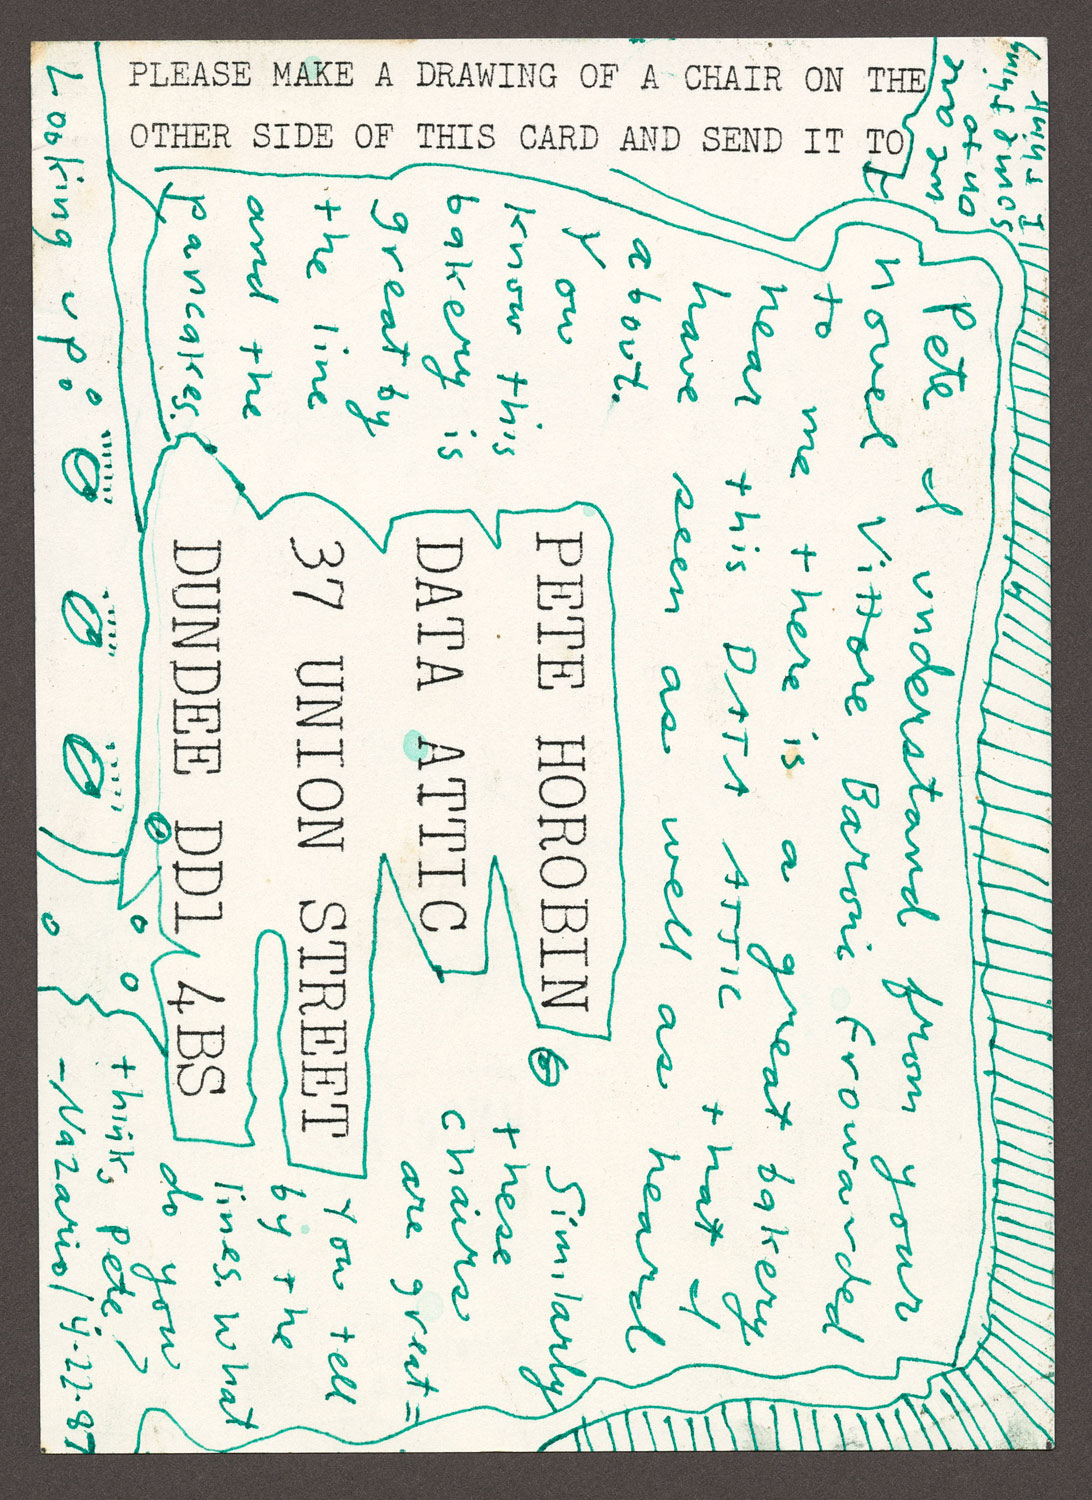 PLEASE MAKE A DRAWING OF A CHAIR ON THE
OTHER SIDE OF THIS CARD AND SEND IT TO
Pete I understand from your
novel Vittore Baroni Frowarded
to me there is a great bakery
near this DATA ATTIC that I
have seen as well as heard
about.
You
know this
bakery is
great by
the line
and the
pancakes.
PETE HOROBIN
DATA ATTIC
37 UNION STREET
DUNDEE DD1 4BS
Similarly
these
chairs
are great =
You tell
by the
lines. What
do you
think, pete?
-Nazario/4-22-87
Looking up.
I think
we are
on to
some thing